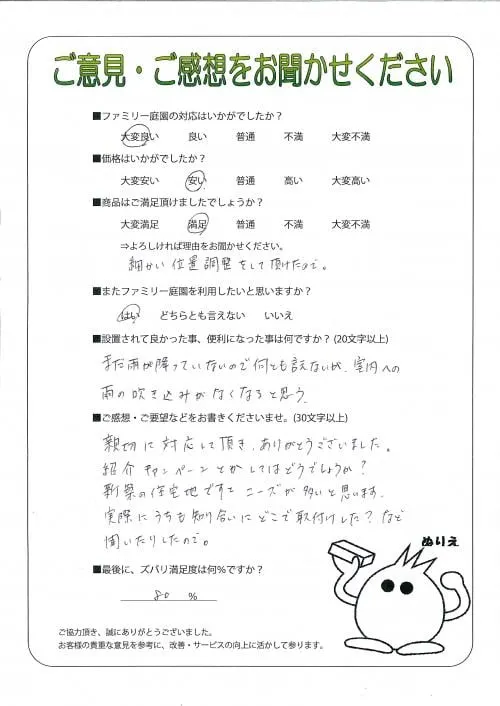 ご意見・ご感想をお聞かせください
■ファミリー庭園の対応はいかがでしたか？
大変良い 良い 普通 不満 大変不満
■価格はいかがでしたか？
大変安い 安い 普通 高い 大変高い
■商品はご満足頂けましたでしょうか？
大変満足 満足 普通 不満 大変不満
⇒よろしければ理由をお聞かせください。
細かい位置調整をして頂けたので。
■またファミリー庭園を利用したいと思いますか？
はい どちらとも言えない いいえ
■設置されて良かった事、便利になった事は何ですか？(20文字以上)
まだ雨が降っていないので何とも言えないが、室内への
雨の吹き込みがなくなると思う。
■ご感想・ご要望などをお書きくださいませ。(30文字以上)
親切に対応して頂き、ありがとうございました。
紹介キャンペーンとかしてはどうでしょうか？
新築の住宅地ですとニーズが多いと思います。
実際にうちも知り合いにどこで取付けした？など
聞いたりしたので。
ぬりえ
■最後に、ズバリ満足度は何%ですか？
80 %
ご協力頂き、誠にありがとうございました。
お客様の貴重な意見を参考に、改善・サービスの向上に活かして参ります。